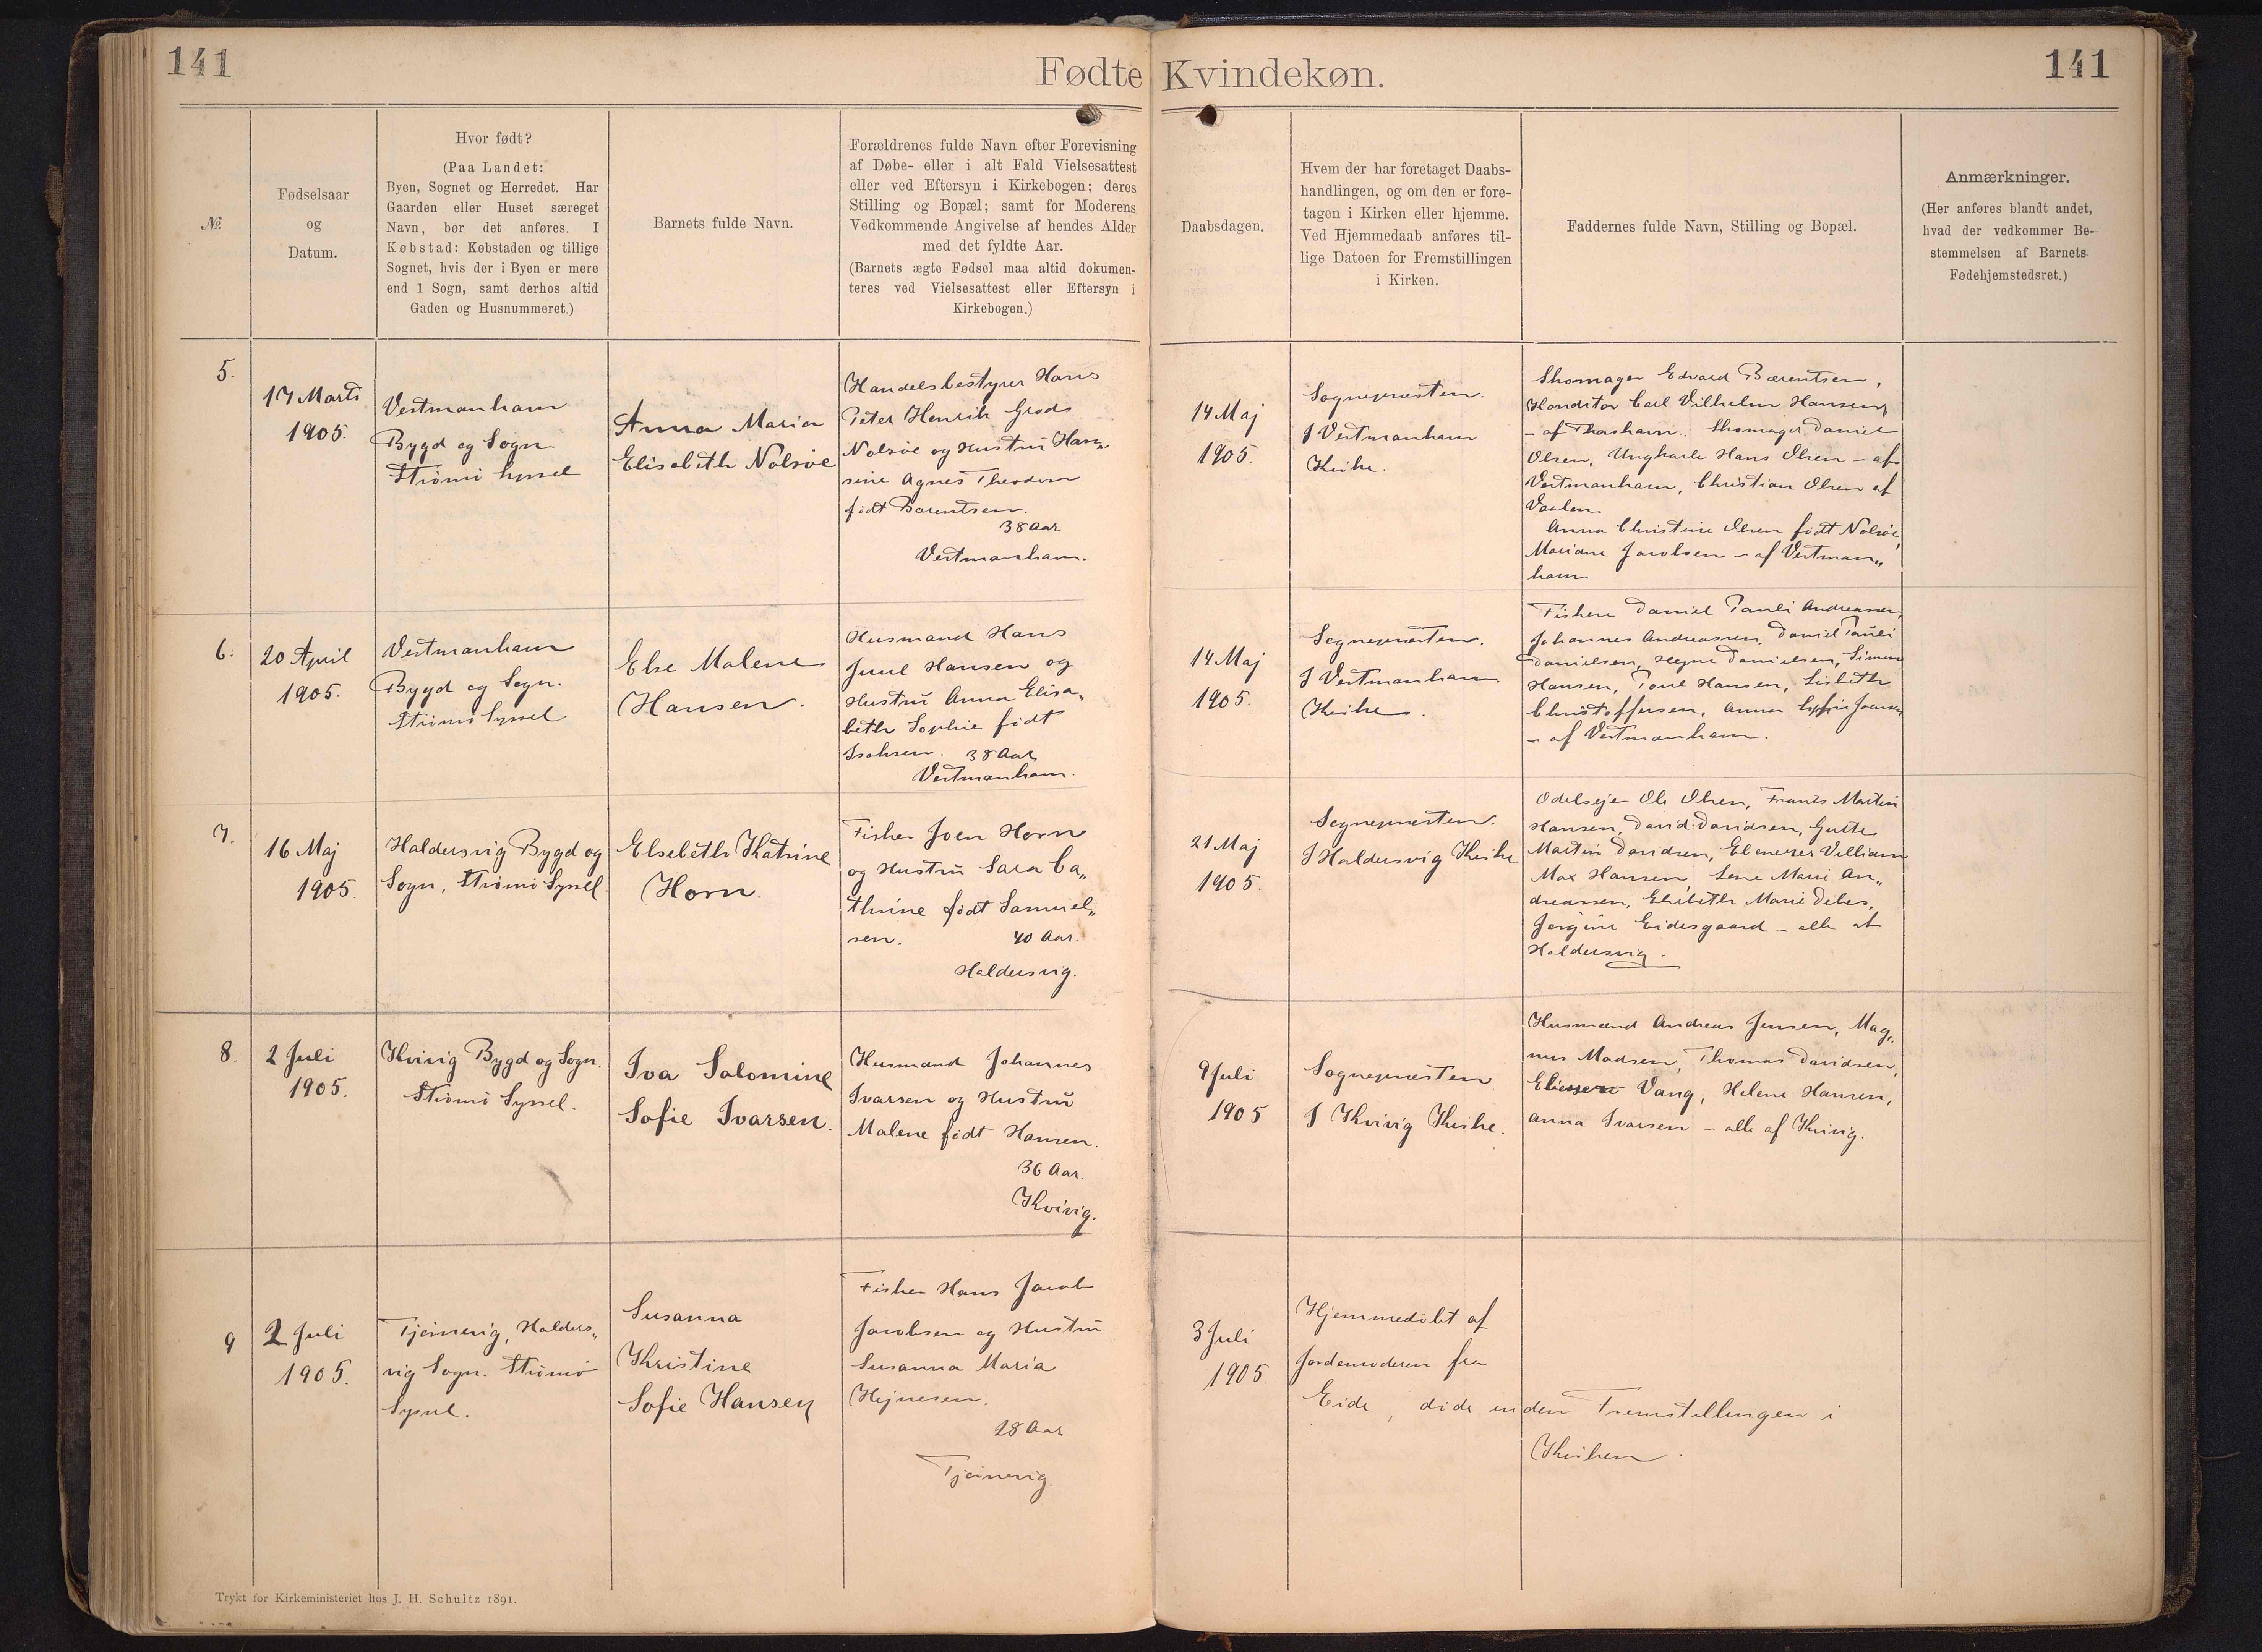 141
Fødte Kvindekøn.
141
№
Fødselsaar
og
Datum.
Hvor født?
(Paa Landet:
Byen, Sognet og Herredet. Har
Gaarden eller Huset særeget
Navn, bør det anføres. I
Købstad: Købstaden og tillige
Sognet, hvis der i Byen er mere
end 1 Sogn, samt derhos altid
Gaden og Husnummeret.)
Barnets fulde Navn.
Forældrenes fulde Navn efter Forevisning
af Døbe- eller i alt Fald Vielsesattest
eller ved Eftersyn i Kirkebogen; deres
Stilling og Bopæl; samt for Moderens
Vedkommende Angivelse af hendes Alder
med det fyldte Aar.
(Barnets ægte Fødsel maa altid dokumen-
teres ved Vielsesattest eller Eftersyn i
Kirkebogen.)
Daabsdagen.
Hvem der har foretaget Daabs-
handlingen, og om den er fore-
tagen i Kirken eller hjemme.
Ved Hjemmedaab anføres til-
lige Datoen for Fremstillingen
i Kirken.
Faddernes fulde Navn, Stilling og Bopæl.
Anmærkninger.
(Her anføres blandt andet,
hvad der vedkommer Be-
stemmelsen af Barnets
Fødehjemstedsret.)
5.
17 Marts
1905.
Vestmanhavn
Bygd og Sogn.
Strømø Syssel
Anna Maria
Elisabeth Nolsøe
Handelsbestyrer Hans
Peter Henrik
Nolsøe og Hustru Han„
sine Agnes Theodora
født Bærentsen.
38 Aar
Vestmanhavn.
14 Maj
1905.
Sognepræsten.
I Vestmanhavn
Kirke.
Skomager Edvard Bærentsen,
Konditor Carl Vilhelm Hansen,
– af Thorshavn. Skomager Daniel
Olsen, Ungkarl Hans Olsen – af
Vestmanhavn, Christian Olsen af
Vaalen
Anna Christine Olsen født Nolsøe,
Mariane Jacobsen – af Vestman„
havn
6.
20 April
1905.
Vestmanhavn
Bygd og Sogn.
Strømø Syssel
Else Malene
Hansen.
Husmand Hans
Juul Hansen og
Hustru Anna Elisa„
beth Sophie født
Isaksen. 38 Aar
Vestmanhavn.
14 Maj
1905.
Sognepræsten.
I Vestmanhavn
Kirke.
Fiskere Daniel Pauli Andreasen,
Johannes Andreasen, Daniel Pauli
Danielsen, Danielsen, Simon
Hansen, Poul Hansen, Lisbeth
Christoffersen, Anna Sofie Joensen
– af Vestmanhavn.
7.
16 Maj
1905.
Haldersvig Bygd og
Sogn, Strømø Syssel
Elsebeth Katrine
Horn.
Fisker Joen Horn
og Hustru Sara Ca„
thrine født Samuel„
sen. 40 Aar.
Haldersvig.
21 Maj
1905.
Sognepræsten.
I Haldersvig Kirke
Odelsejer Ole Olsen, Frants Martin
Hansen, David Davidsen, Gutte
Martin Davidsen, Ebenezer Villiam
Max Hansen, Lene Marie An„
dreassen, Elsebeth Marie Debes,
Jørgine Eidesgaard – alle af
Haldersvig.
8.
2 Juli
1905.
Kvivig Bygd og Sogn.
Strømø Syssel.
Iva Salomine
Sofie Ivarsen.
Husmand Johannes
Ivarsen og Hustru
Malene født Hansen.
36 Aar.
Kvivig.
9 Juli
1905
Sognepræsten
I Kvivig Kirke.
Husmænd Andreas Jensen, Mag„
nus Madsen, Thomas Davidsen,
Vang, Helene Hansen,
Anna Ivarsen – alle af Kvivig.
9
2 Juli
1905.
Tjørnevig, Halders„
vig Sogn. Strømø
Syssel.
Susanna
Kristine
Sofie Hansen
Fisker Hans Jacob
Jacobsen og Hustru
Susanna Maria
Hejnesen.
28 Aar
Tjørnevig.
3 Juli
1905.
Hjemmedøbt af
Jordemoderen fra
Eide, døde inden Fremstillingen i
Kirken.
Trykt for Kirkeministeriet hos J. H. Schultz 1891.